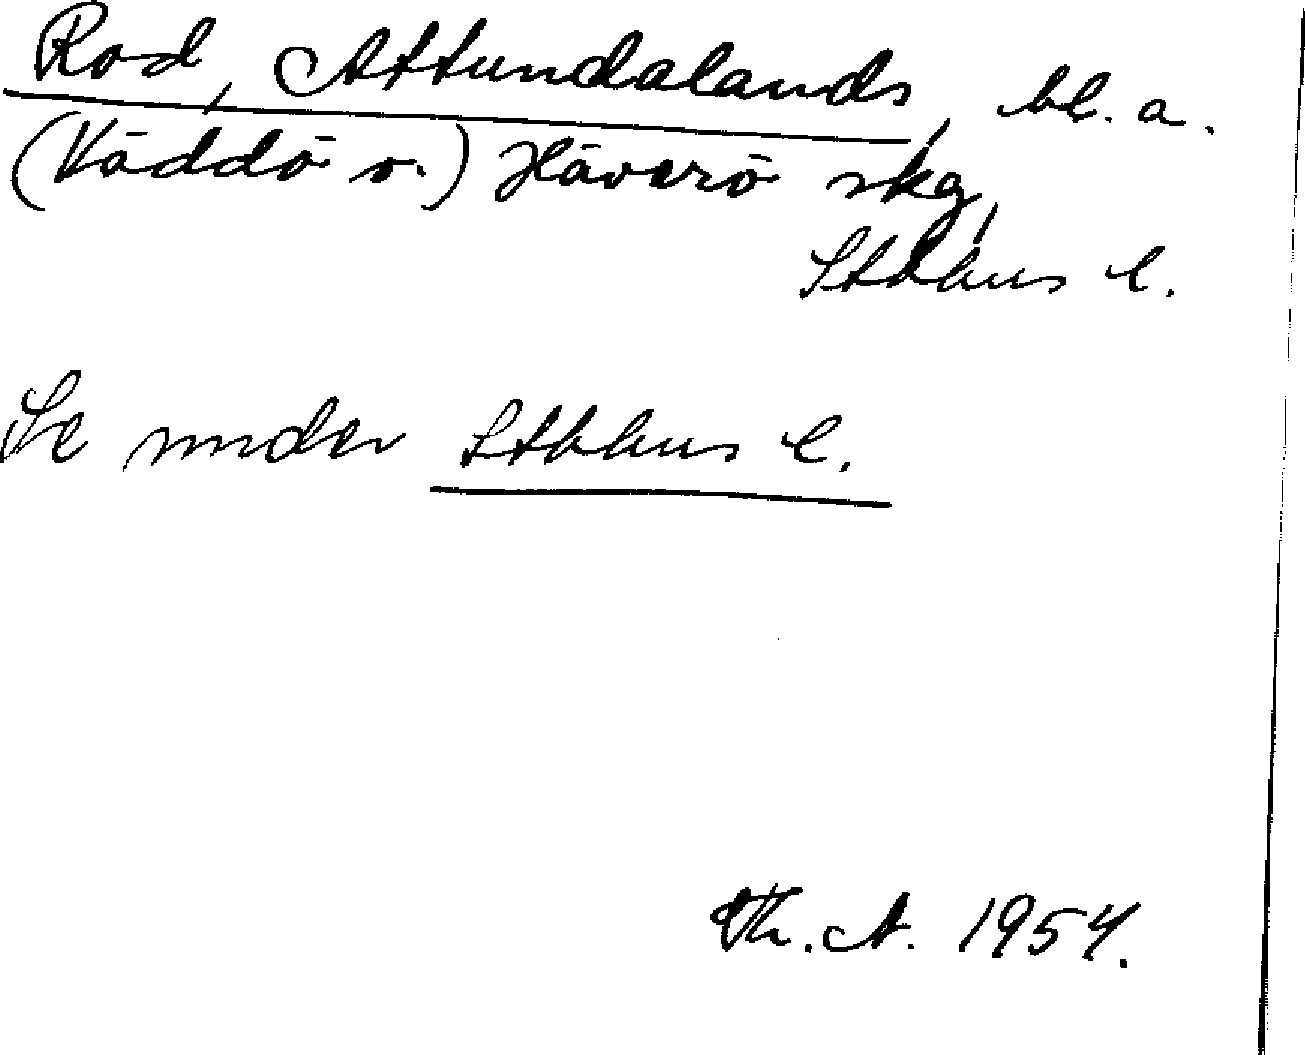 Rod, Attundalands, bl. a.
(Väddö o.) Häverö skg,
Sthlms l.
Se under Sthlms l.
Th. A. 1954.